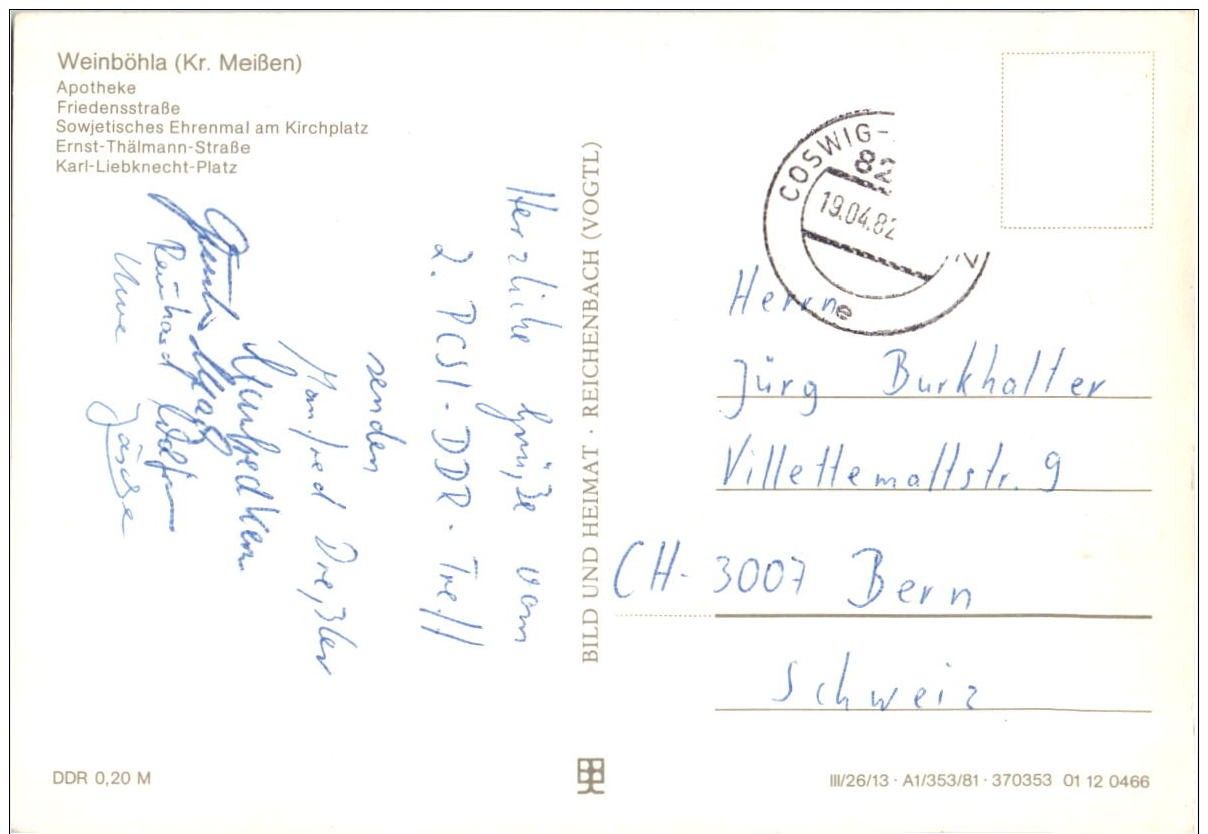 Weinböhla (Kr. Meißen)
Apotheke
Friedensstraße
Sowjetisches Ehrenmal am Kirchplatz
Ernst-Thälmann-Straße
Karl-Liebknecht-Platz
Herzliche Grüße vom
2. PCSI-DDR-Treff
senden
Manfred Dreßler
Reinhard
Uwe Jäschke
BILD UND HEIMAT · REICHENBACH (VOGTL)
COSWIG-
82
19.04.82
e
Herrn
Jürg Burkhalter
Villettemattstr. 9
CH-3007 Bern
Schweiz
DDR 0,20 M
III/26/13 · A1/353/81 · 370353 01 12 0466